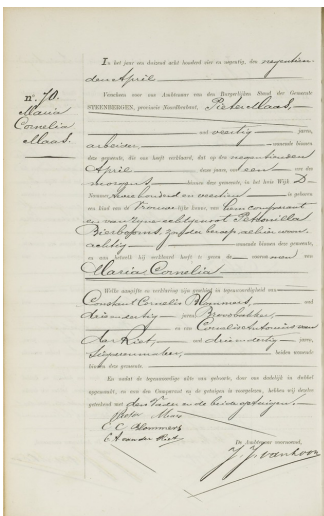 In het jaar een duizend acht honderd vier en negentig, den negentien-
den April
n°. 70.
Maria
Cornelia
Maas.
Verscheen voor ons Ambtenaar van den Burgerlijken Stand der Gemeente
STEENBERGEN, provincie Noordbrabant, Pieter Maas,
oud veertig jaren,
arbeider, wonende binnen
deze gemeente, die ons heeft verklaard, dat op den negentienden
April dezes jaars, ten een ure des
morgens binnen deze gemeente, in het huis Wijk D.
Nummer tweehonderd en is geboren
een kind van de Vrouwelijke kunne, van hem comparant
en van zijne echtgenoot Petronilla
zonder beroep alhier woon-
achtig wonende binnen deze gemeente,
en aan hetwelk hij verklaard heeft te geven de voornamen van
Maria Cornelia
Welke aangifte en verklaring zijn geschied in tegenwoordigheid van
Constant Cornelis Blommers, oud
drie en dertig jaren, Broodbakker,
en van Cornelis Antonius van
der Riet, oud drie en dertig jaren,
beiden wonende
binnen deze gemeente.
En nadat de tegenwoordige akte van geboorte, door ons dadelijk in dubbel
opgemaakt, en aan den Comparant en de getuigen is voorgelezen, hebben wij dezelve
geteekend met den Vader en de beide getuigen.
Pieter Maas
C. C. Blommers
C A van der Riet
De Ambtenaar voornoemd,
J. J. van Loon